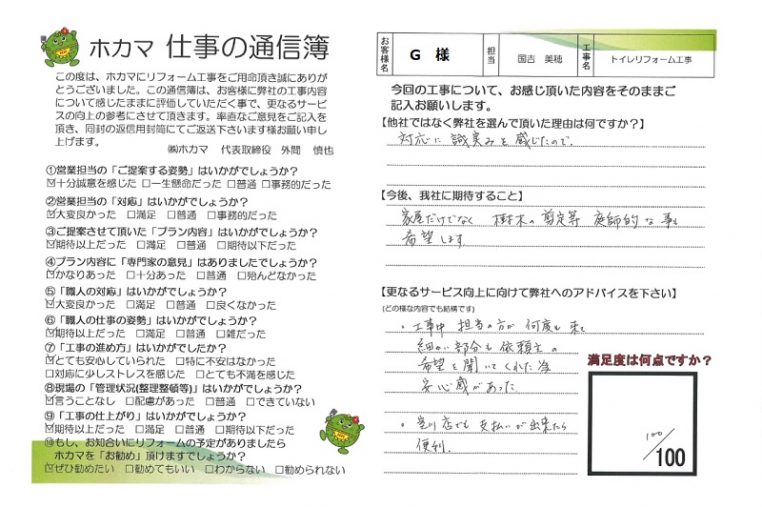 ホカマ 仕事の通信簿
この度は、ホカマにリフォーム工事をご用命頂き誠にありが
とうございました。この通信簿は、お客様に弊社の工事内容
について感じたままに評価していただく事で、更なるサービ
スの向上の参考にさせて頂きます。率直なご意見をご記入を
頂き、同封の返信用封筒にてご返送下さいます様お願い申し
上げます。
㈱ホカマ 代表取締役 外間 慎也
①営業担当の「ご提案する姿勢」はいかがでしょうか?
☑十分誠意を感じた □一生懸命だった □普通 □事務的だった
②営業担当の「対応」はいかがでしょうか?
☑大変良かった □満足 □普通 □事務的だった
③ご提案させて頂いた「プラン内容」はいかがでしょうか?
☑期待以上だった □満足 □普通 □期待以下だった
④プラン内容に「専門家の意見」はありましたでしょうか?
☑かなりあった □十分あった □普通 □殆んどなかった
⑤「職人の対応」はいかがでしょうか?
☑大変良かった □満足 □普通 □良くなかった
⑥「職人の仕事の姿勢」はいかがでしょうか?
☑期待以上だった □満足 □普通 □雑だった
⑦「工事の進め方」はいかがでしたか?
☑とても安心していられた □特に不安はなかった
□対応に少しストレスを感じた □とても不満を感じた
⑧現場の「管理状況(整理整頓等)」はいかがでしょうか?
☑言うことなし □配慮があった □普通 □できていない
⑨「工事の仕上がり」はいかがでしょうか?
☑期待以上だった □満足 □普通 □期待以下だった
⑩もし、お知合いにリフォームの予定がありましたら
ホカマを「お勧め」頂けますでしょうか?
☑ぜひ勧めたい □勧めてもいい □わからない □勧められない
お客様名 G 様 担当 国吉 美穂 工事名 トイレリフォーム工事
今回の工事について、お感じ頂いた内容をそのままご
記入お願いします。
【他社ではなく弊社を選んで頂いた理由は何ですか?】
対応に誠実みを感じたので.
【今後、我社に期待すること】
家屋だけでなく 樹木の剪定等 庭師的な事も
希望します
【更なるサービス向上に向けて弊社へのアドバイスを下さい】
(どの様な内容でも結構です)
・工事中 担当の方が何度も来て
細かい部分も依頼主の
希望を聞いてくれた為
安心感があった.
・豊川店でも支払いが出来たら
便利.
満足度は何点ですか?
100/100